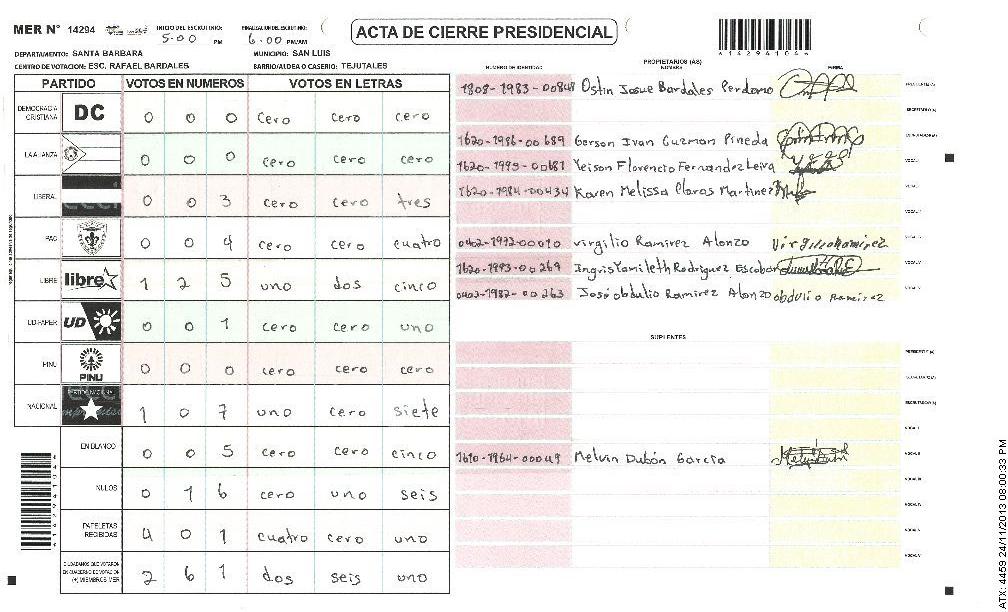 MER N° 14294 INICIO DEL ESCRUTINIO: 5:00 PM FINALIZACION DEL ESCRUTINIO: 6:00 PM/AM
ACTA DE CIERRE PRESIDENCIAL
DEPARTAMENTO: SANTA BARBARA MUNICIPIO: SAN LUIS
CENTRO DE VOTACION: ESC. RAFAEL BARDALES BARRIO/ALDEA O CASERIO: TEJUTALES
PARTIDO VOTOS EN NUMEROS VOTOS EN LETRAS
DEMOCRACIA CRISTIANA DC 0 0 0 cero cero cero
LA ALIANZA 0 0 0 cero cero cero
LIBERAL 0 0 3 cero cero tres
PAC 0 0 4 cero cero cuatro
LIBRE libre 1 2 5 uno dos cinco
UD-FAPER UD 0 0 1 cero cero uno
PINU PINU 0 0 0 cero cero cero
NACIONAL 1 0 7 uno cero siete
EN BLANCO 0 0 5 cero cero cinco
NULOS 0 1 6 cero uno seis
PAPELETAS RECIBIDAS 4 0 1 cuatro cero uno
CIUDADANOS QUE VOTARON EN CUADERNO DE VOTACION (+) MIEMBROS MER 2 6 1 dos seis uno
PROPIETARIOS (AS)
NUMERO DE IDENTIDAD NOMBRE FIRMA
Ostin Josue Bardales Perdomo PRESIDENTE (A)
SECRETARIO (A)
1620-1986-00689 Gerson Ivan Guzman Pineda ESCRUTADOR (A)
1620-1995-00681 Yeison Florencio Fernandez Leiva VOCAL I
1620-1984-00434 Karen Melissa Claros Martinez VOCAL II
0402-1972-00010 Virgilio Ramirez Alonzo Virgilio Ramirez
1620-1993-00269 Ingris Yamileth Rodriguez Escobar
0402-1982-00263 José obdulio Ramirez Alonzo obdulio Ramirez
SUPLENTES
PRESIDENTE (A)
SECRETARIO (A)
ESCRUTADOR (A)
VOCAL I
1610-1964-00049 Melvin Dubón Garcia VOCAL II
VOCAL III
VOCAL IV
VOCAL V
VOCAL VI
ATX: 4459 24/11/2013 08:00:33 PM